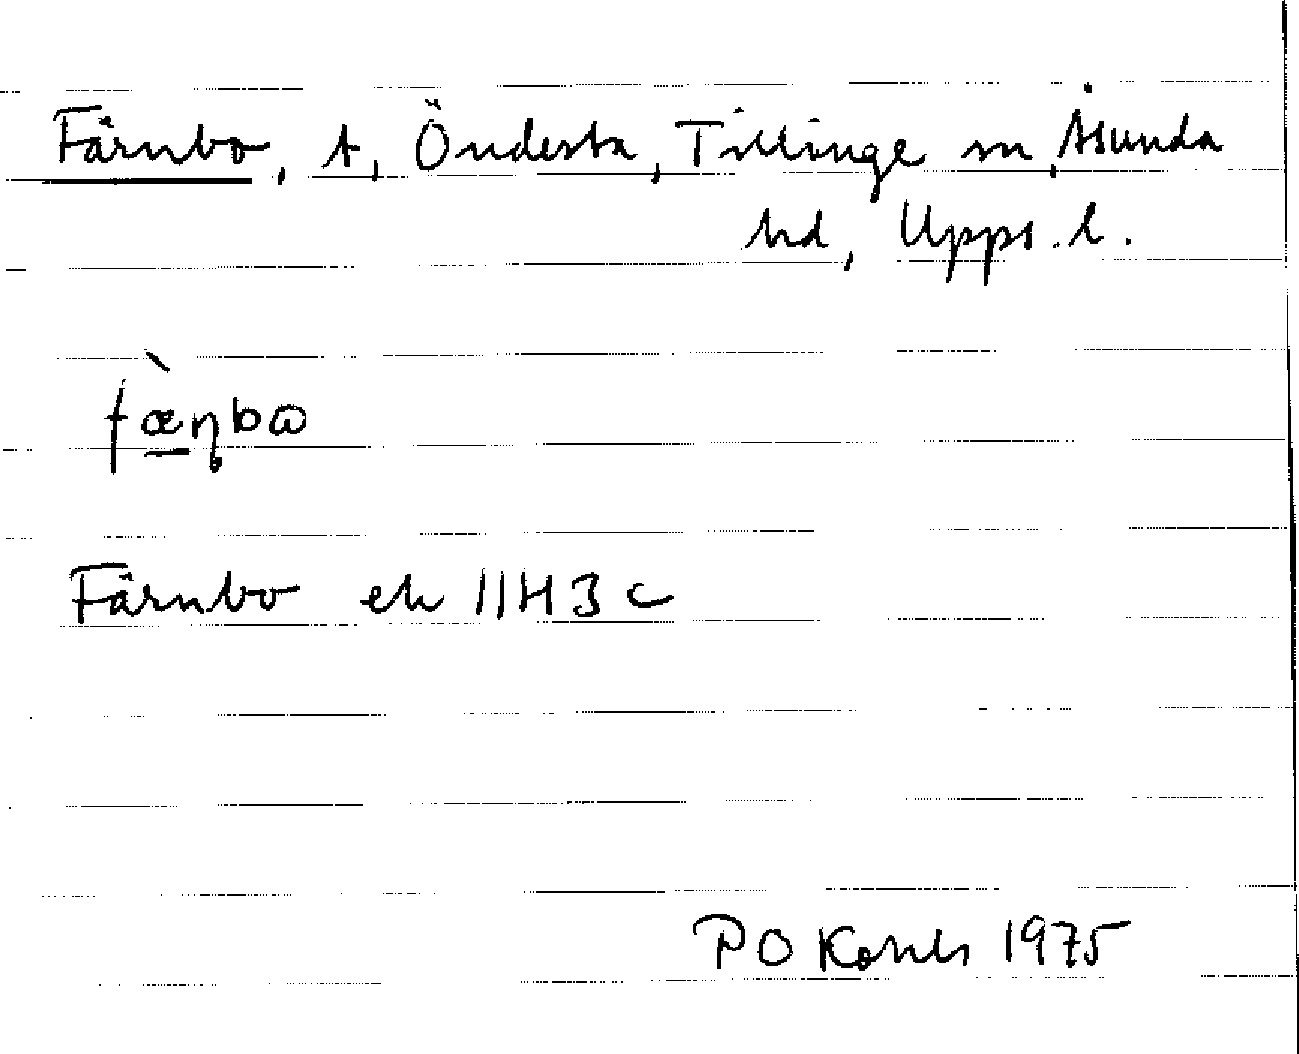 Färnbo, t, Öndesta, Tillinge sn, Åsunda
hd, Upps. l.
fæ̀ɳbɷ
Färnbo ek 11H 3c
P O 1975